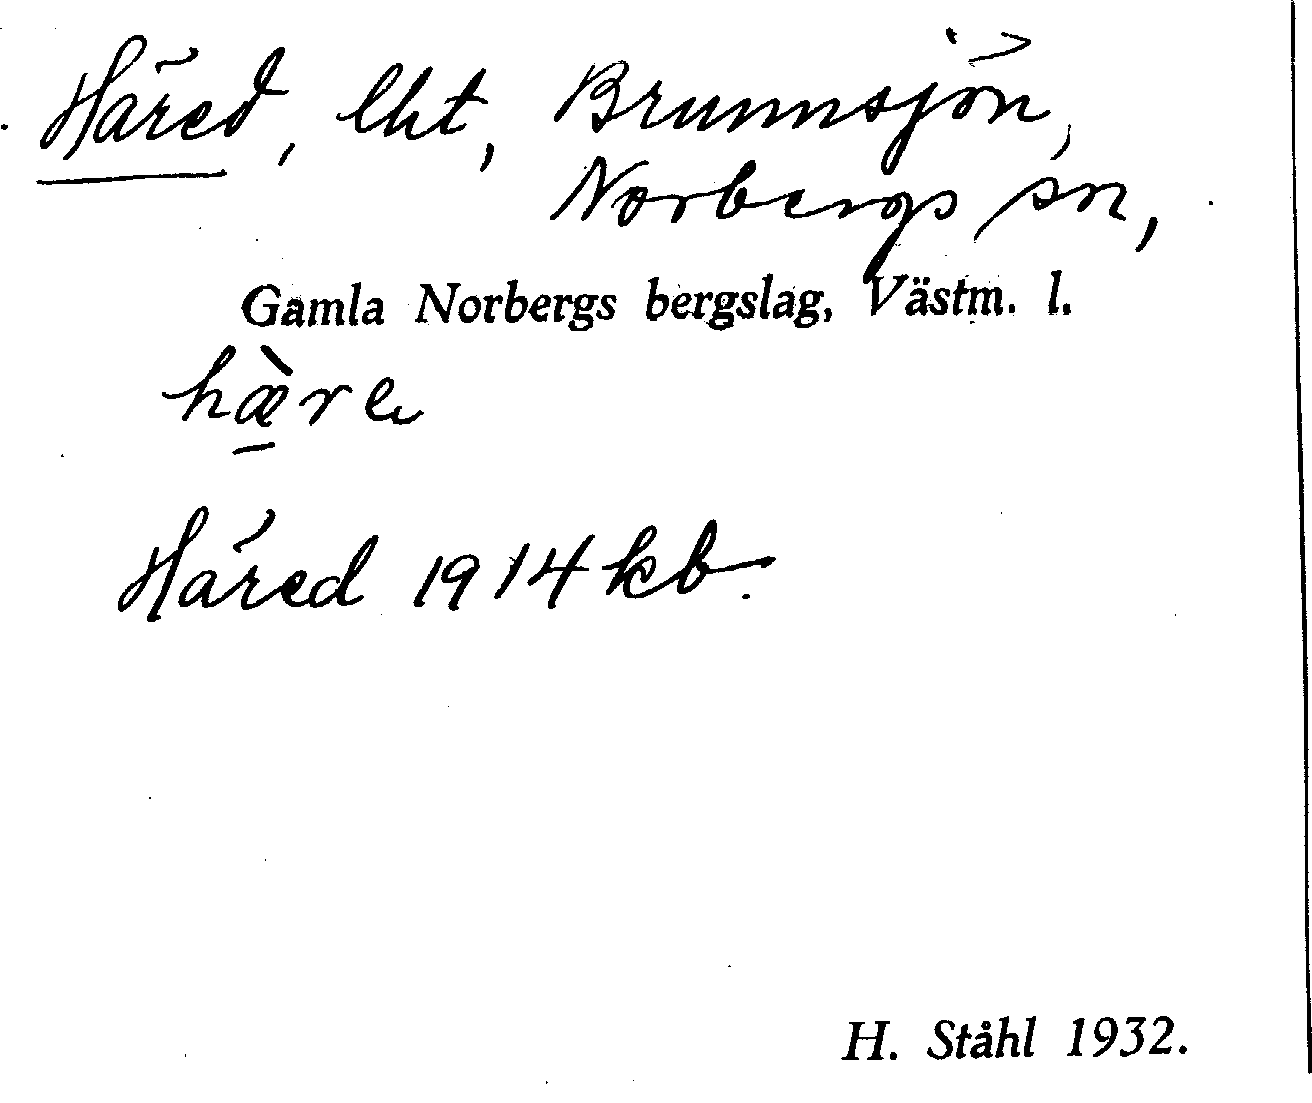 Häred, lht, Brunnsjön,
Norbergs sn,
Gamla Norbergs bergslag, Västm. l.
hæ̀re
Häred 1914 kb.
H. Ståhl 1932.